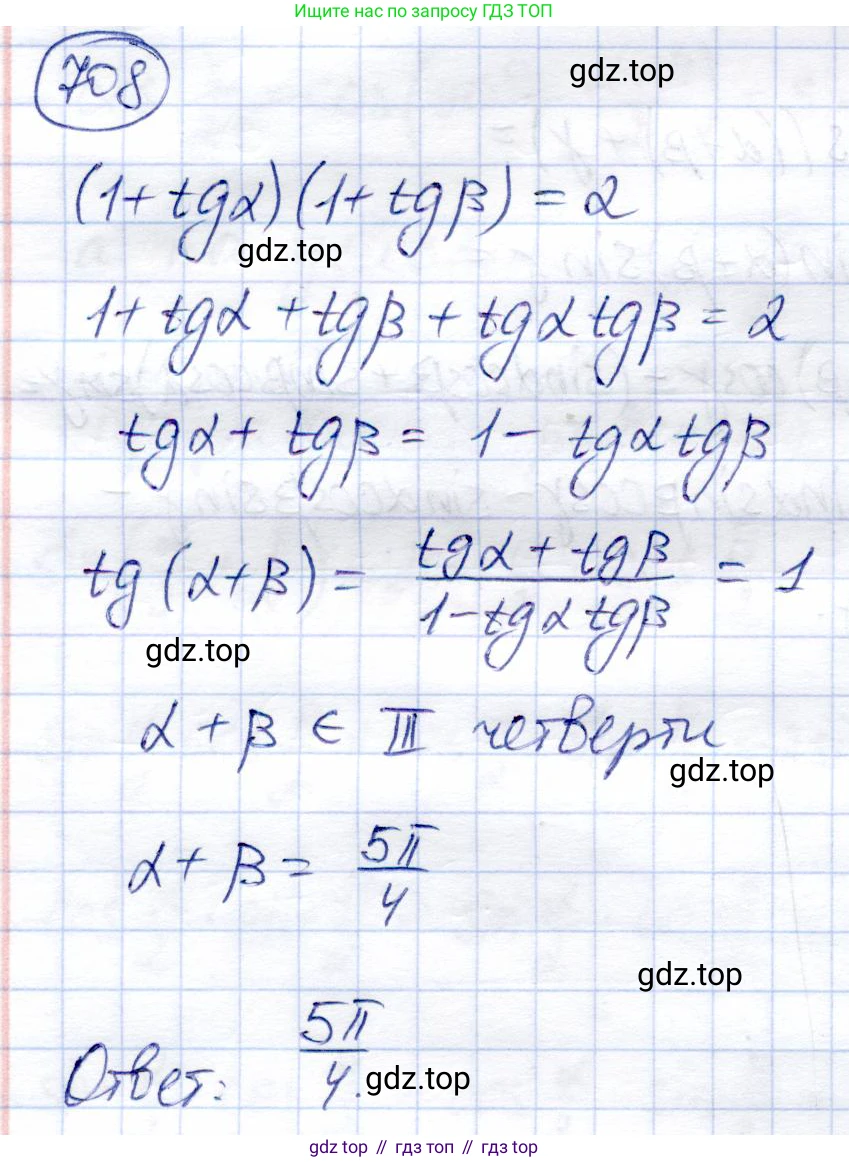 Ищите нас по запросу ГДЗ ТОП
708
gdz.top
(1+tgα)(1+tgβ)=2
gdz.top
1+tgα+tgβ+tgα tgβ=2
tgα+tgβ=1-tgα tgβ
tg(α+β)=(tgα+tgβ)/(1-tgα tgβ)=1
gdz.top
α+β∈III четверти
gdz.top
α+β=5π/4
gdz.top
Ответ: 5π/4.
gdz.top
gdz.top // гдз топ // gdz top